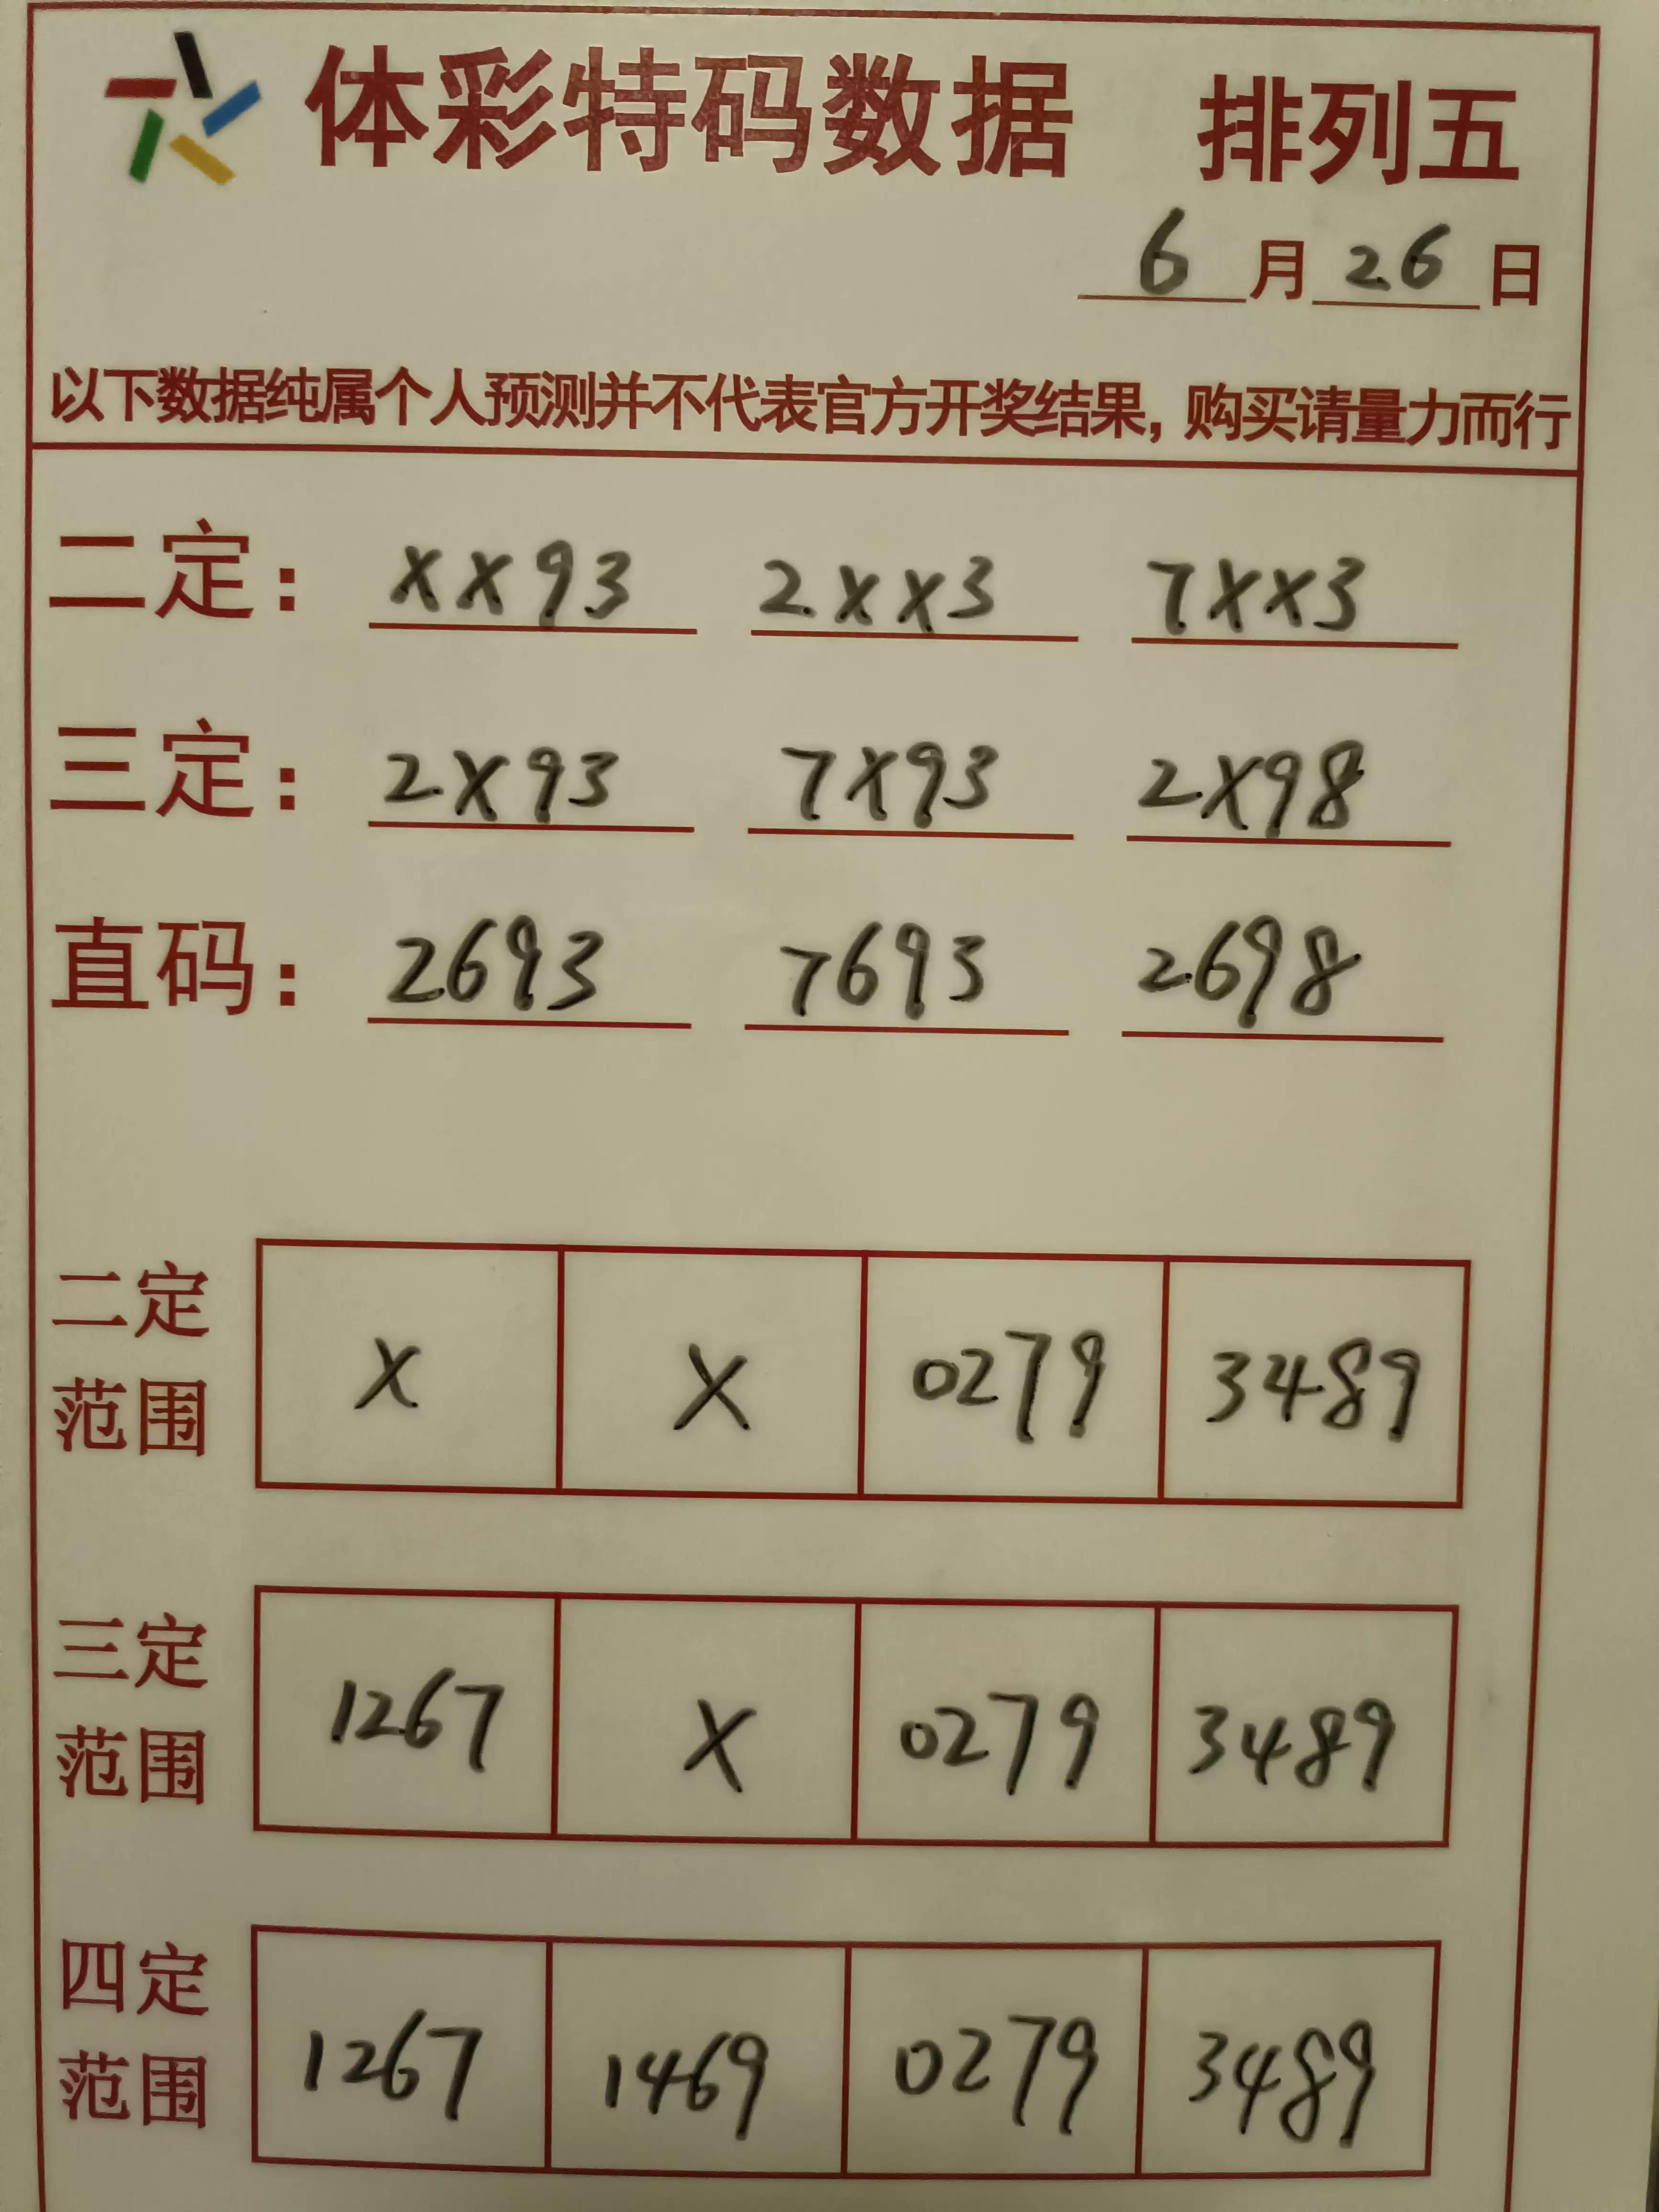 体彩特码数据 排列五
6月26日
以下数据纯属个人预测并不代表官方开奖结果，购买请量力而行
二定： XX93 2XX3 7XX3
三定： 2X93 7X93 2X98
直码： 2693 7693 2698
二定范围 X X 0279 3489
三定范围 1267 X 0279 3489
四定范围 1267 1469 0279 3489